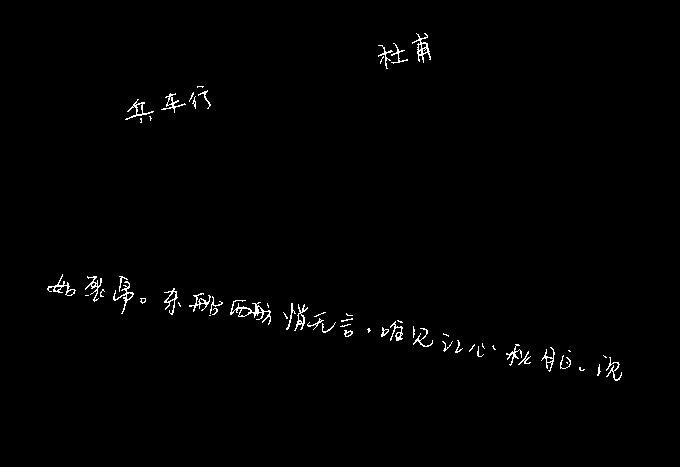 杜甫
兵车行
如裂帛。东船西舫悄无言，唯见江心秋月白。沉